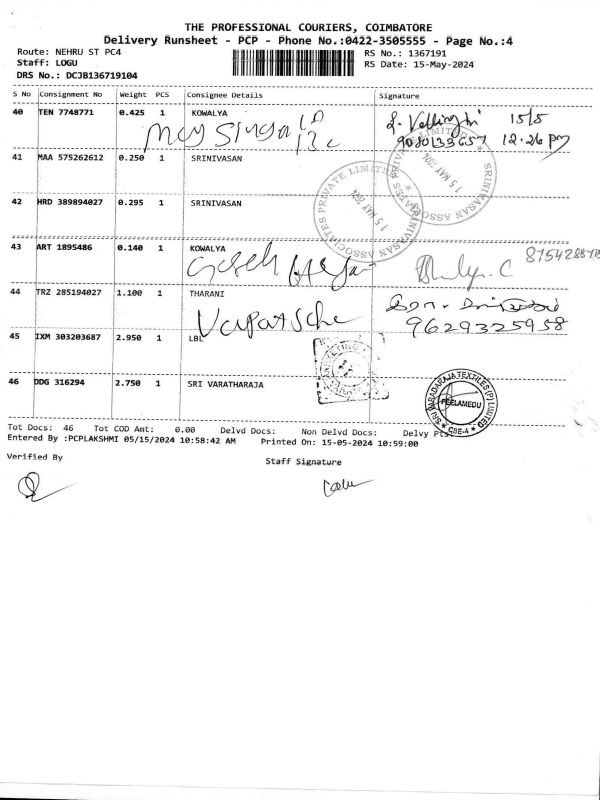 THE PROFESSIONAL COURIERS, COIMBATORE
Delivery Runsheet - PCP - Phone No.:0422-3505555 - Page No.:4
Route: NEHRU ST PC4 RS No.: 1367191
Staff: LOGU RS Date: 15-May-2024
DRS No.: DCJB136719104
S No Consignment No Weight PCS Consignee Details Signature
40 TEN 7748771 0.425 1 KOWALYA 15/5
12.26 PM
41 MAA 575262612 0.250 1 SRINIVASAN
SRINIVASAN ASSOCIATES PRIVATE LIMITED
15 MAY 2024
42 HRD 389894027 0.295 1 SRINIVASAN
SRINIVASAN ASSOCIATES PRIVATE LIMITED
15 MAY 2024
43 ART 1895486 0.140 1 KOWALYA
44 TRZ 285194027 1.100 1 THARANI
9629325958
45 IXM 303203687 2.950 1 LBL
46 DDG 316294 2.750 1 SRI VARATHARAJA
SRI VARADARAJA TEXTILES (P) LIMITED
PEELAMEDU
CBE-4
Tot Docs: 46 Tot COD Amt: 0.00 Delvd Docs: Non Delvd Docs: Delvy Pts:
Entered By :PCPLAKSHMI 05/15/2024 10:58:42 AM Printed On: 15-05-2024 10:59:00
Verified By
Staff Signature